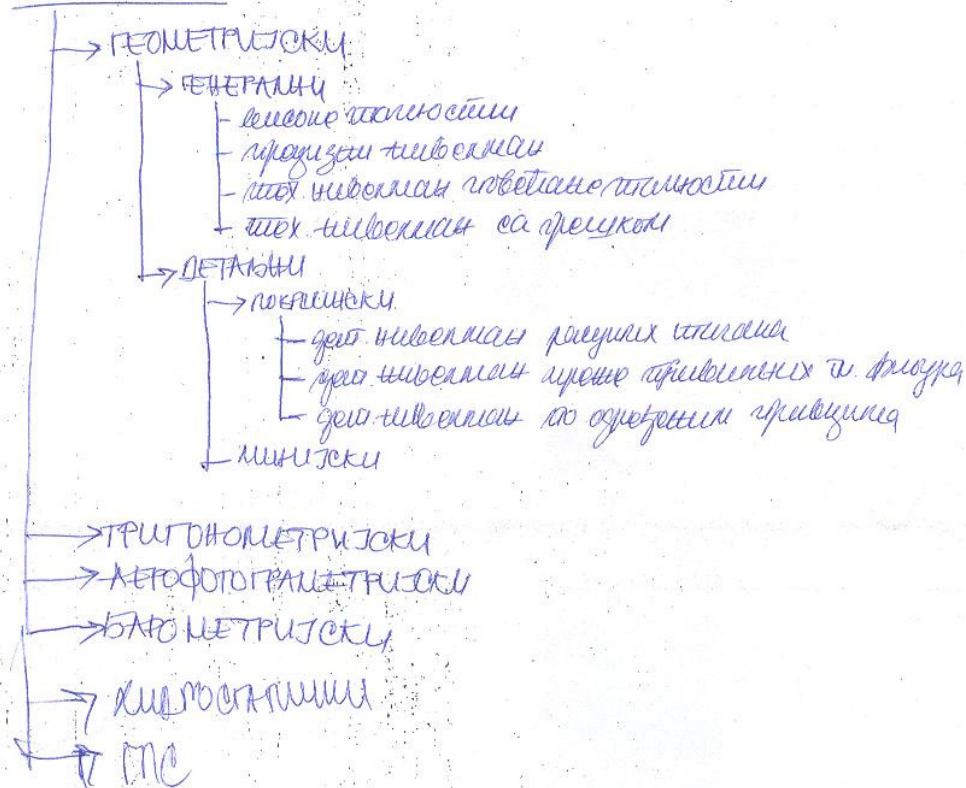 ГЕОМЕТРИЈСКИ
ГЕНЕРАЛНИ
високе тачности
прецизни нивелман
тех. нивелман повећане тачности
тех. нивелман са грешком
ДЕТАЉНИ
ПОВРШИНСКИ
дет. нивелман расутих тачака
дет. нивелман мреже правилних
дет. нивелман по одређеним правцима
ЛИНИЈСКИ
ТРИГОНОМЕТРИЈСКИ
АЕРОФОТОГРАМЕТРИЈСКИ
БАРОМЕТРИЈСКИ
ХИДРОСТАТИЧКИ
ГПС